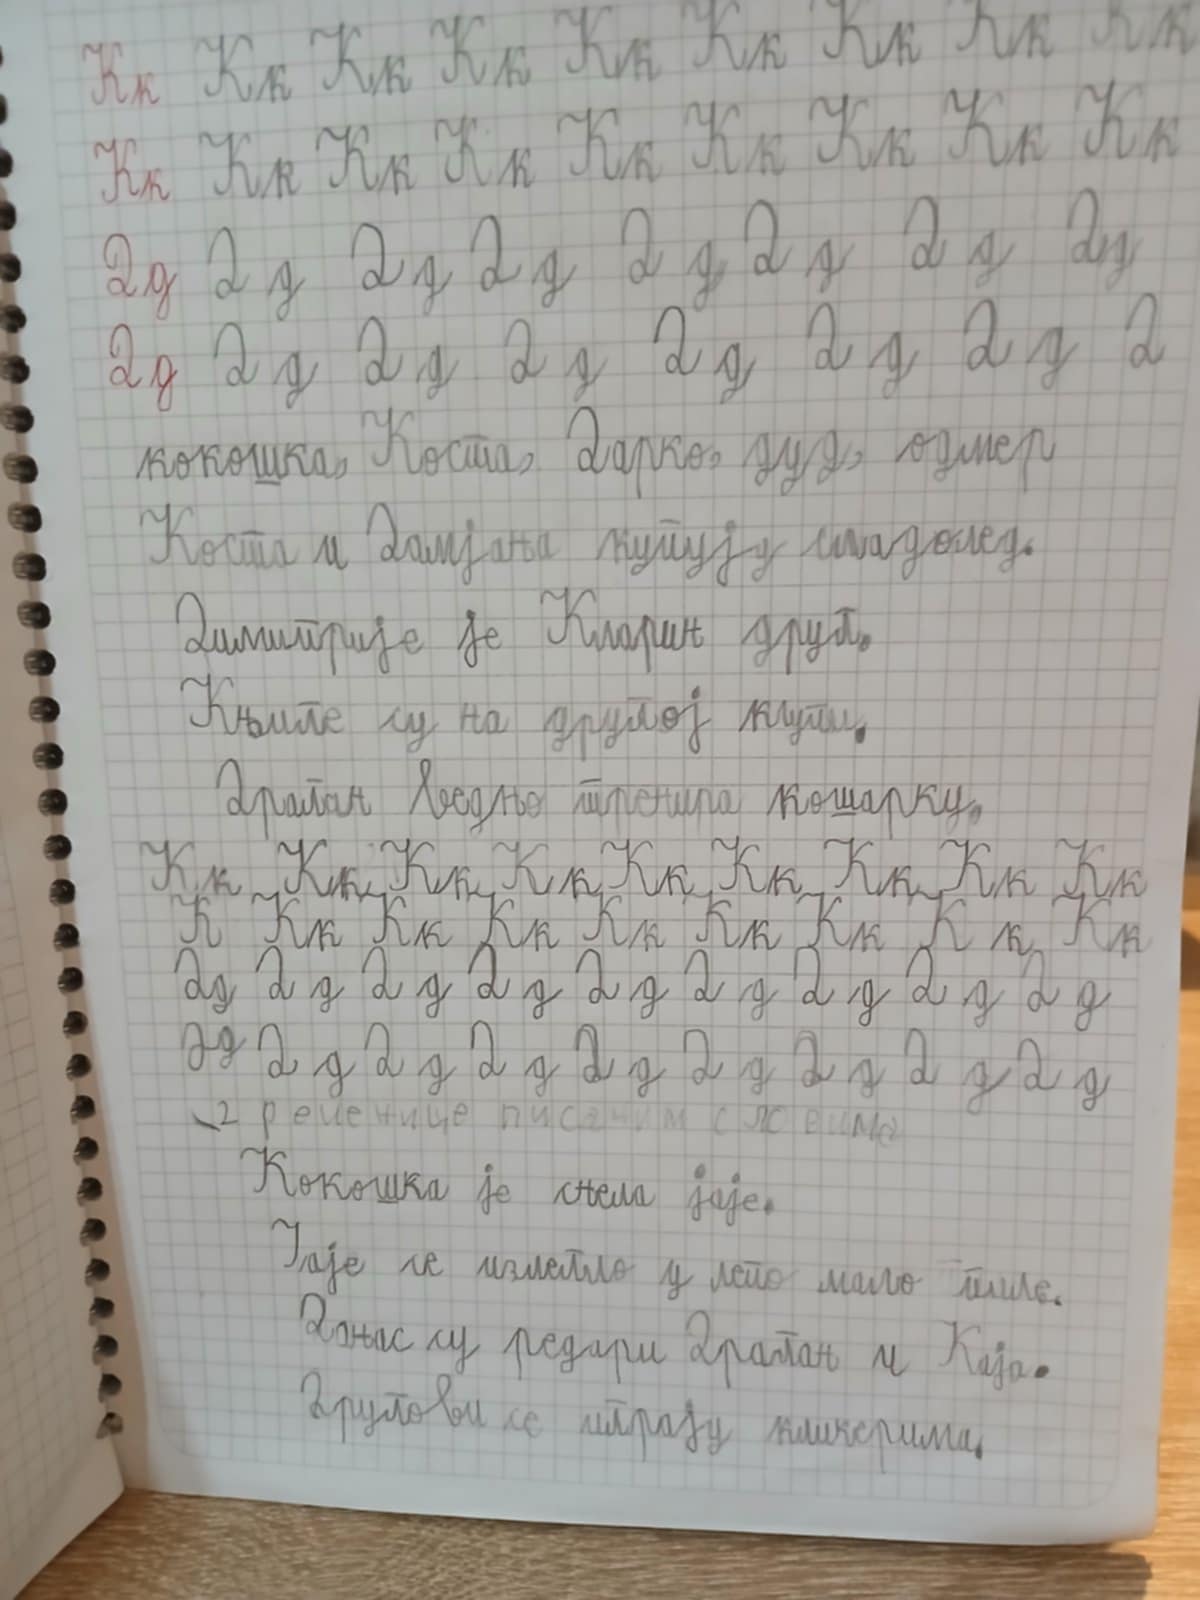 Кк Кк Кк Кк Кк Кк Кк Кк Кк
Кк Кк Кк Кк Кк Кк Кк Кк Кк
Дд Дд Дд Дд Дд Дд Дд Дд
Дд Дд Дд Дд Дд Дд Дд Д
кокошка, Коста, Дарко, дуд, одмер
Коста и Дамјана купују сладолед.
Димитрије је Кларин друг.
Књиге су на другој клупи.
Драган вредно тренира кошарку.
Кк Кк Кк Кк Кк Кк Кк Кк Кк
К Кк Кк Кк Кк Кк Кк К к Кк
Дд Дд Дд Дд Дд Дд Дд Дд Дд
Дд Дд Дд Дд Дд Дд Дд Дд Дд
2 реченице писаним словима
Кокошка је снела јаје.
Јаје се излегло у лепо мало пиле.
Данас су редари Драган и Каја.
Другови се играју кликерима.